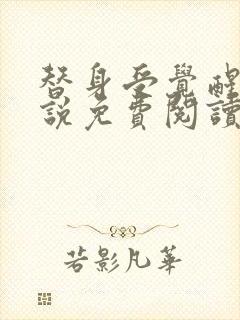 替身受覺醒
說免費閱讀
若影凡華